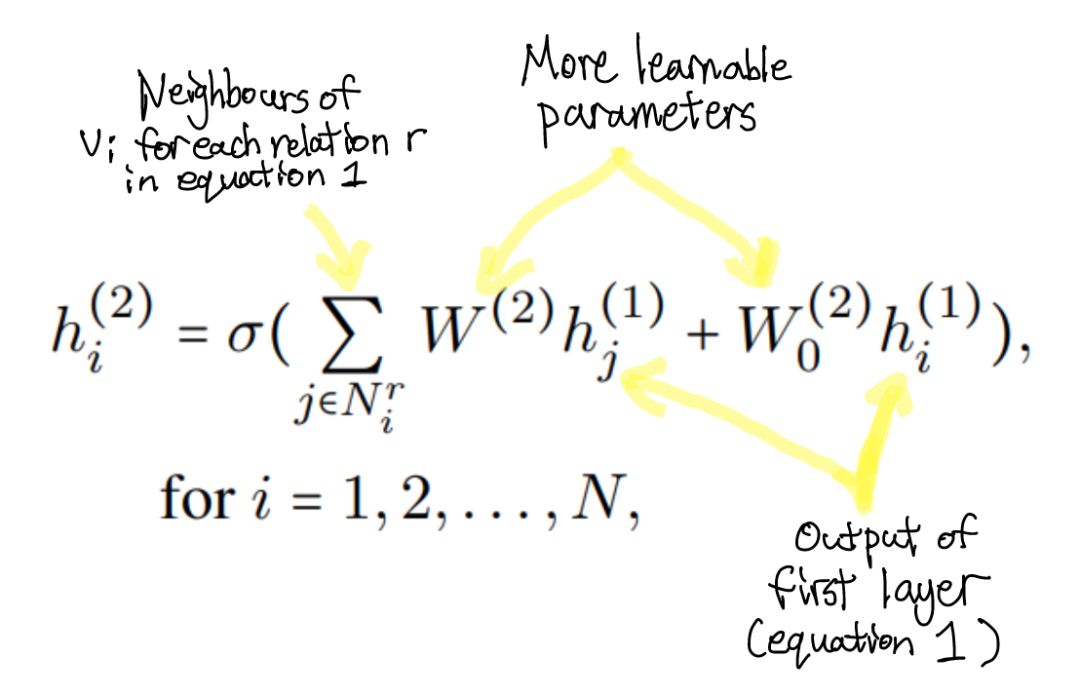 More learnable
parameters
Neighbours of
vi for each relation r
in equation 1
h_i^{(2)} = σ( ∑_{j∈N_i^r} W^{(2)} h_j^{(1)} + W_0^{(2)} h_i^{(1)} ),
for i = 1, 2, . . . , N,
Output of
first layer
(equation 1)